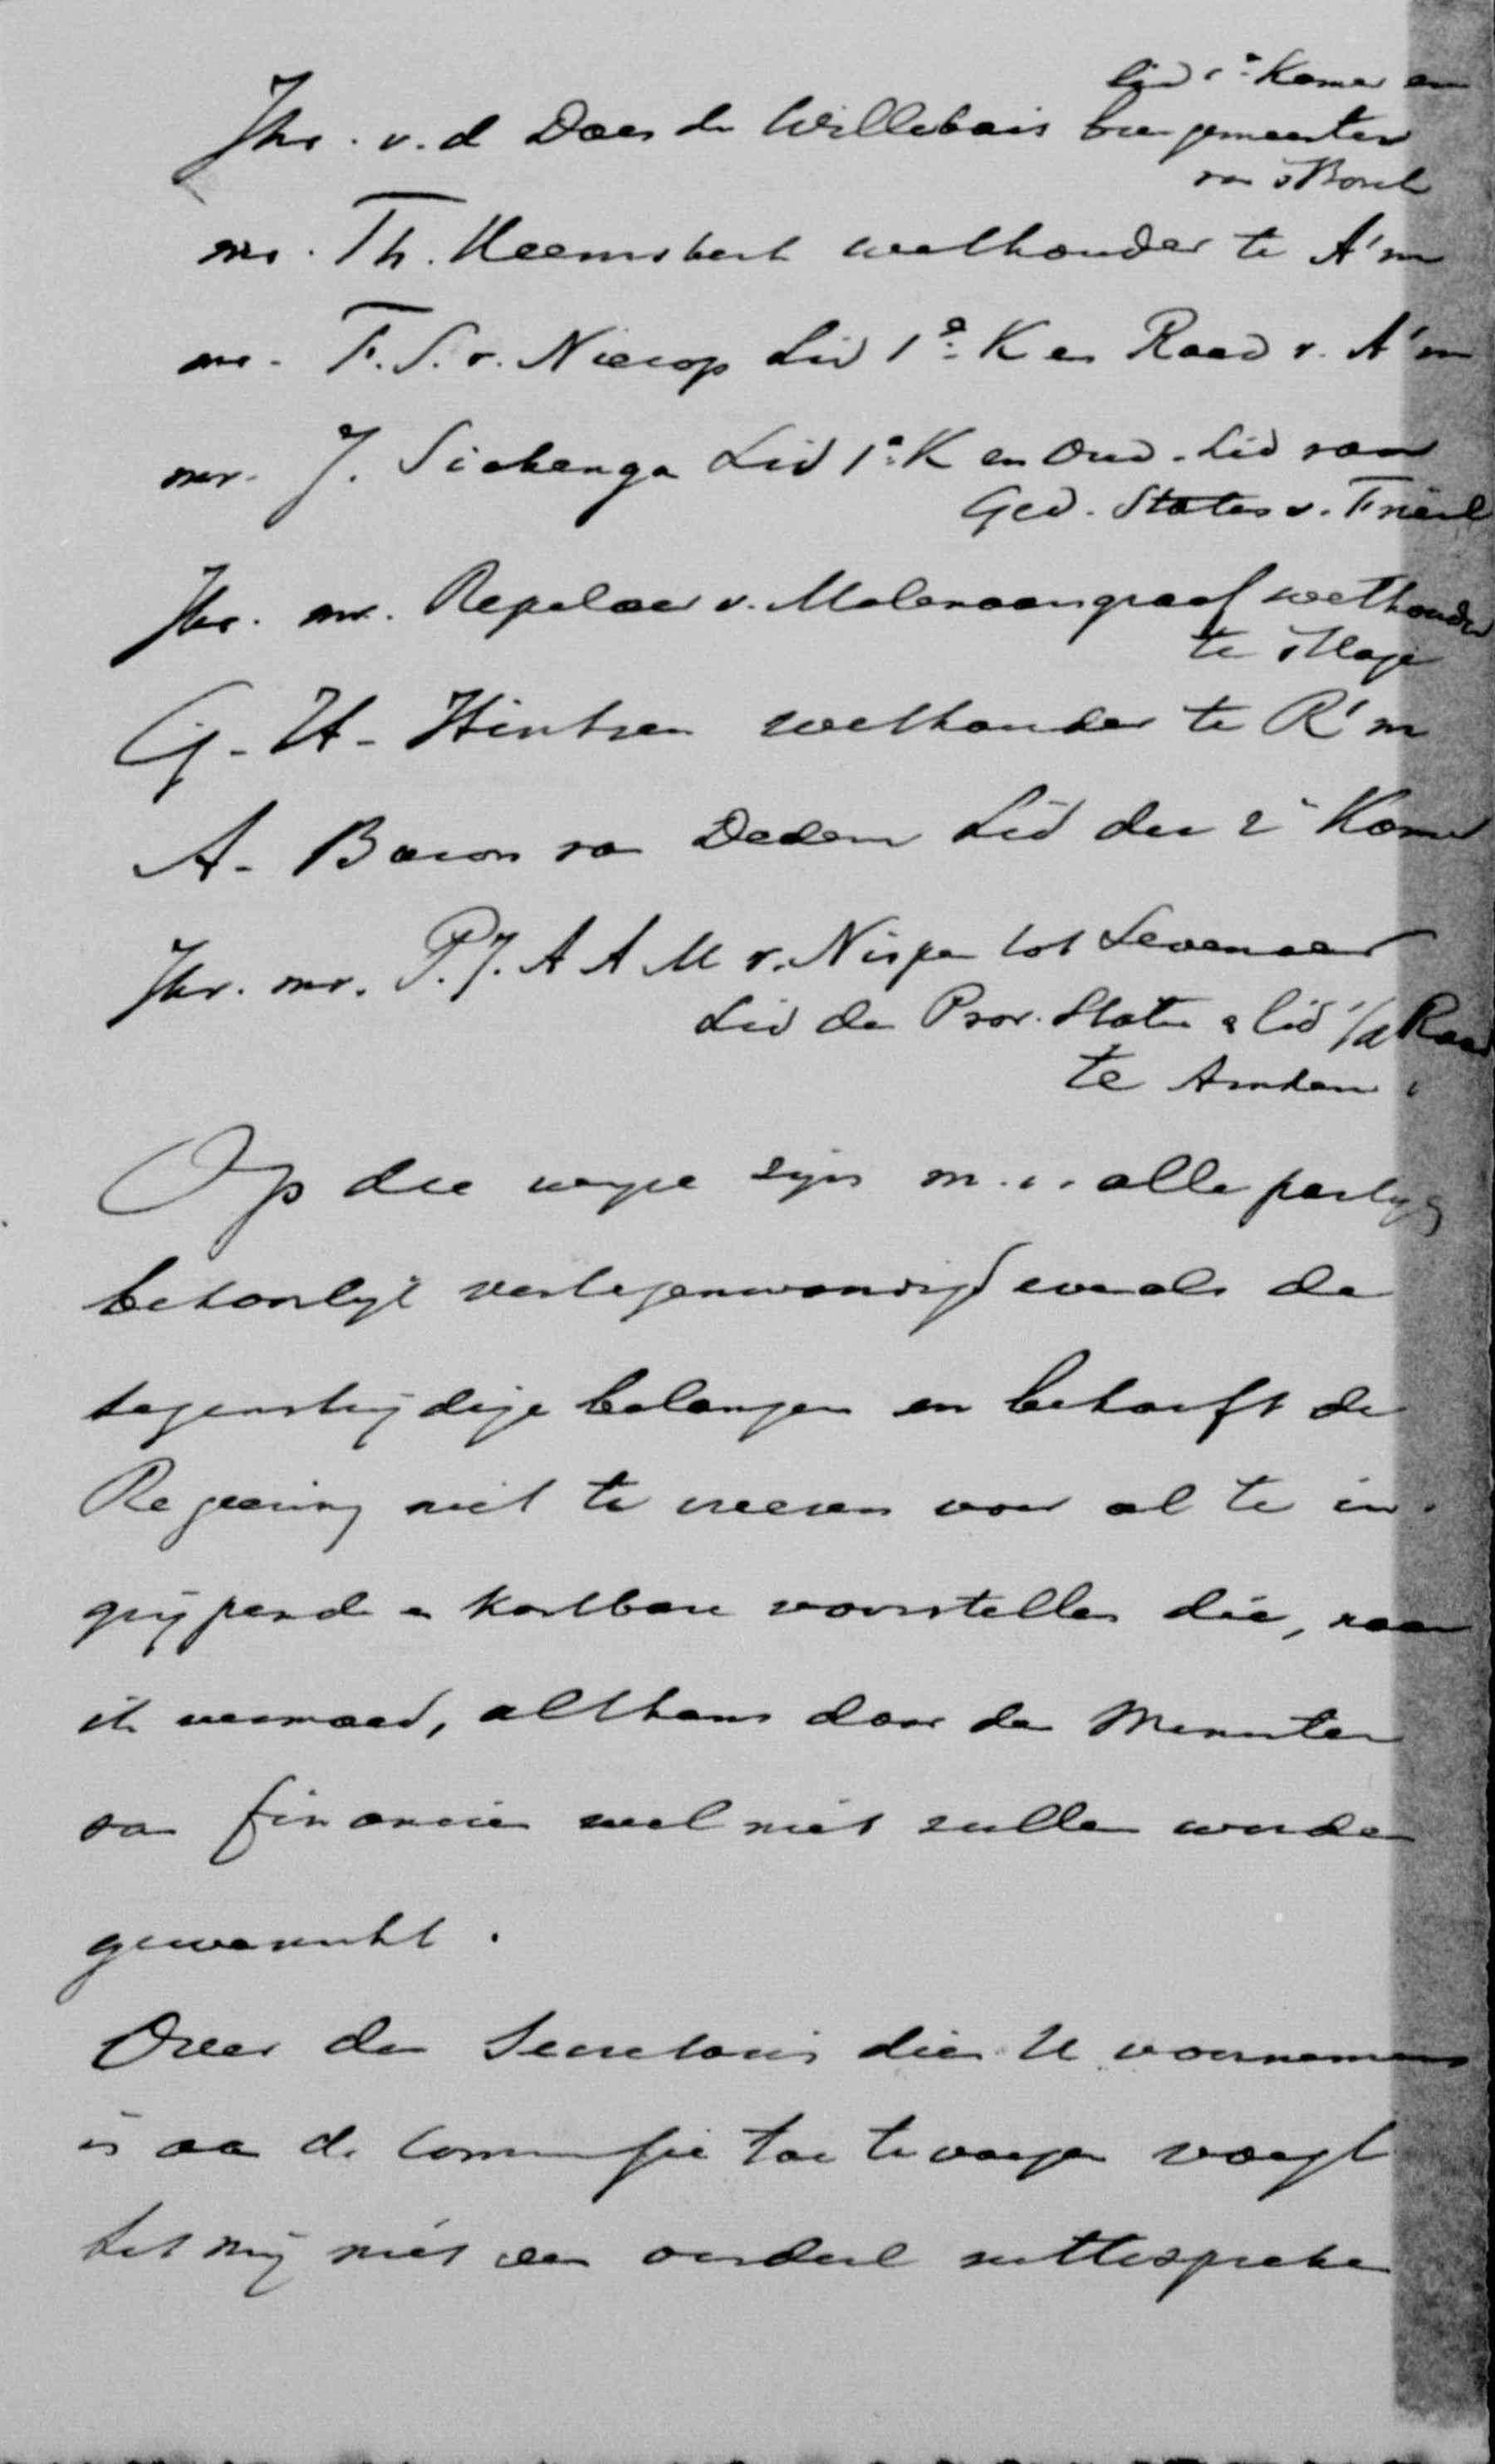 lid 1e Kamer en
Jhr. v. d Does de Willebois burgemeester
van 's Bosch
mr. Th. Heemskerk wethouder te A'm
mr. F. S. v. Nierop Lid 1e K en Raad v. A'm
mr. J. Sickenga Lid 1e K en Oud-Lid van
Ged. Staten v. Friesl
Jhr. mr. Repelaer v. Molenaarsgraaf wethouder
te 's Hage
G. H. Hintzen wethouder te R'm
A. Baron van Dedem Lid der 2e Kamer
Jhr. mr. P. J. A A M v. Nispen tot Sevenaer
Lid der Prov. Staten & lid v/d Raad
te Arnhem.
Op die wijze zijn m. i. alle partijen
behoorlijk vertegenwoordigd evenals de
tegenstrijdige belangen en behoeft de
Regeering niet te vreezen voor al te in-
grijpende en kostbare voorstellen die, naar
ik vermoed, althans door den Minister
van financien wel niet zullen worden
gewenscht.
Over den Secretaris dien U voornemens
is aan de Commissie toe te voegen voegt
het mij niet een oordeel uittespreken